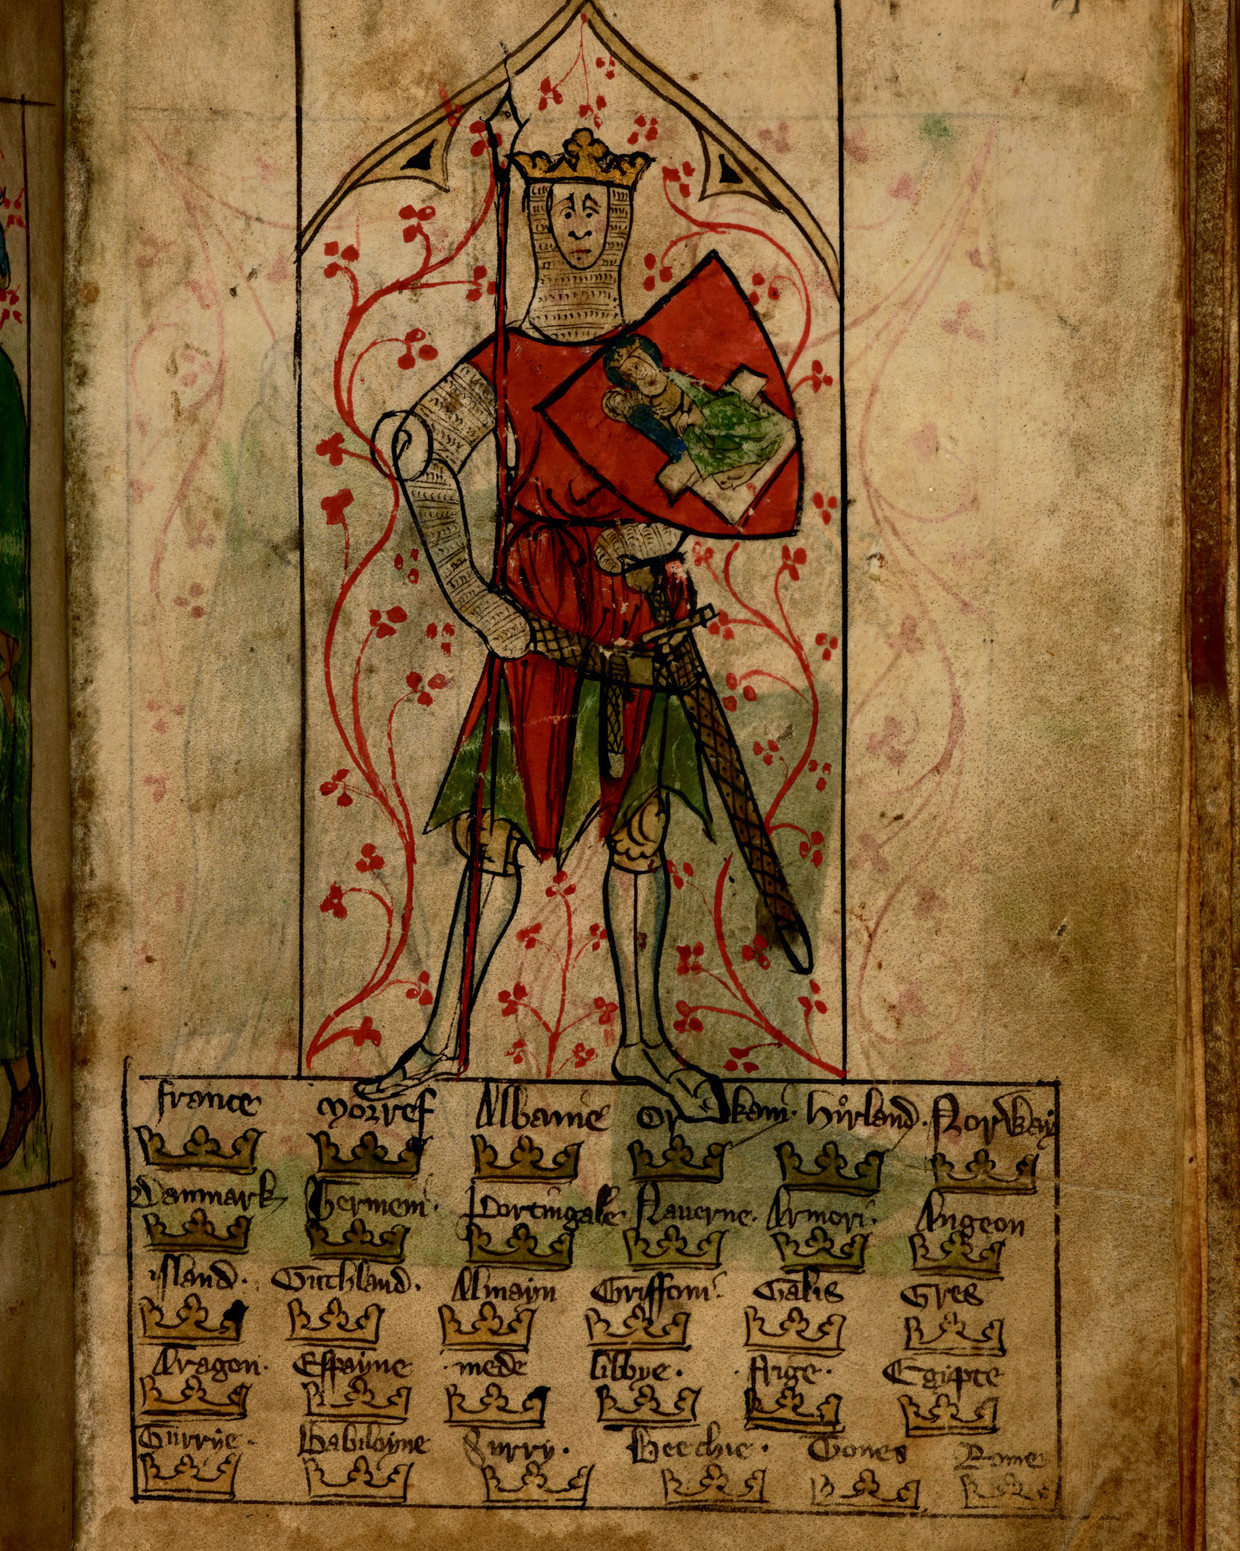 france norref Albanie Orkani hirland Norway
Danmark Germeni Portingale Nauerne Armori Angeon
island Guthland Almayn Griffoni Galis Gres
Aragon Espayne mede libye Aige Egipte
Surrye Babiloyne Boechie Rome